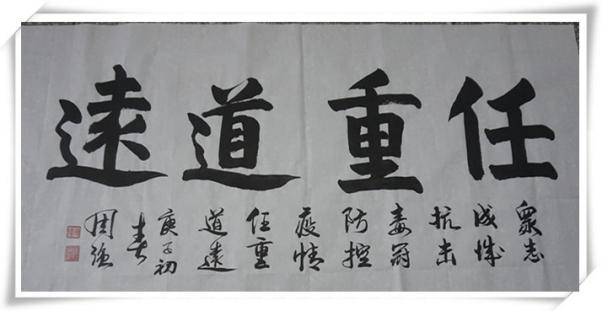 任重道遠
衆志
成城
抗击
毒冠
防控
疫情
任重
道遠
庚子初
春
周强